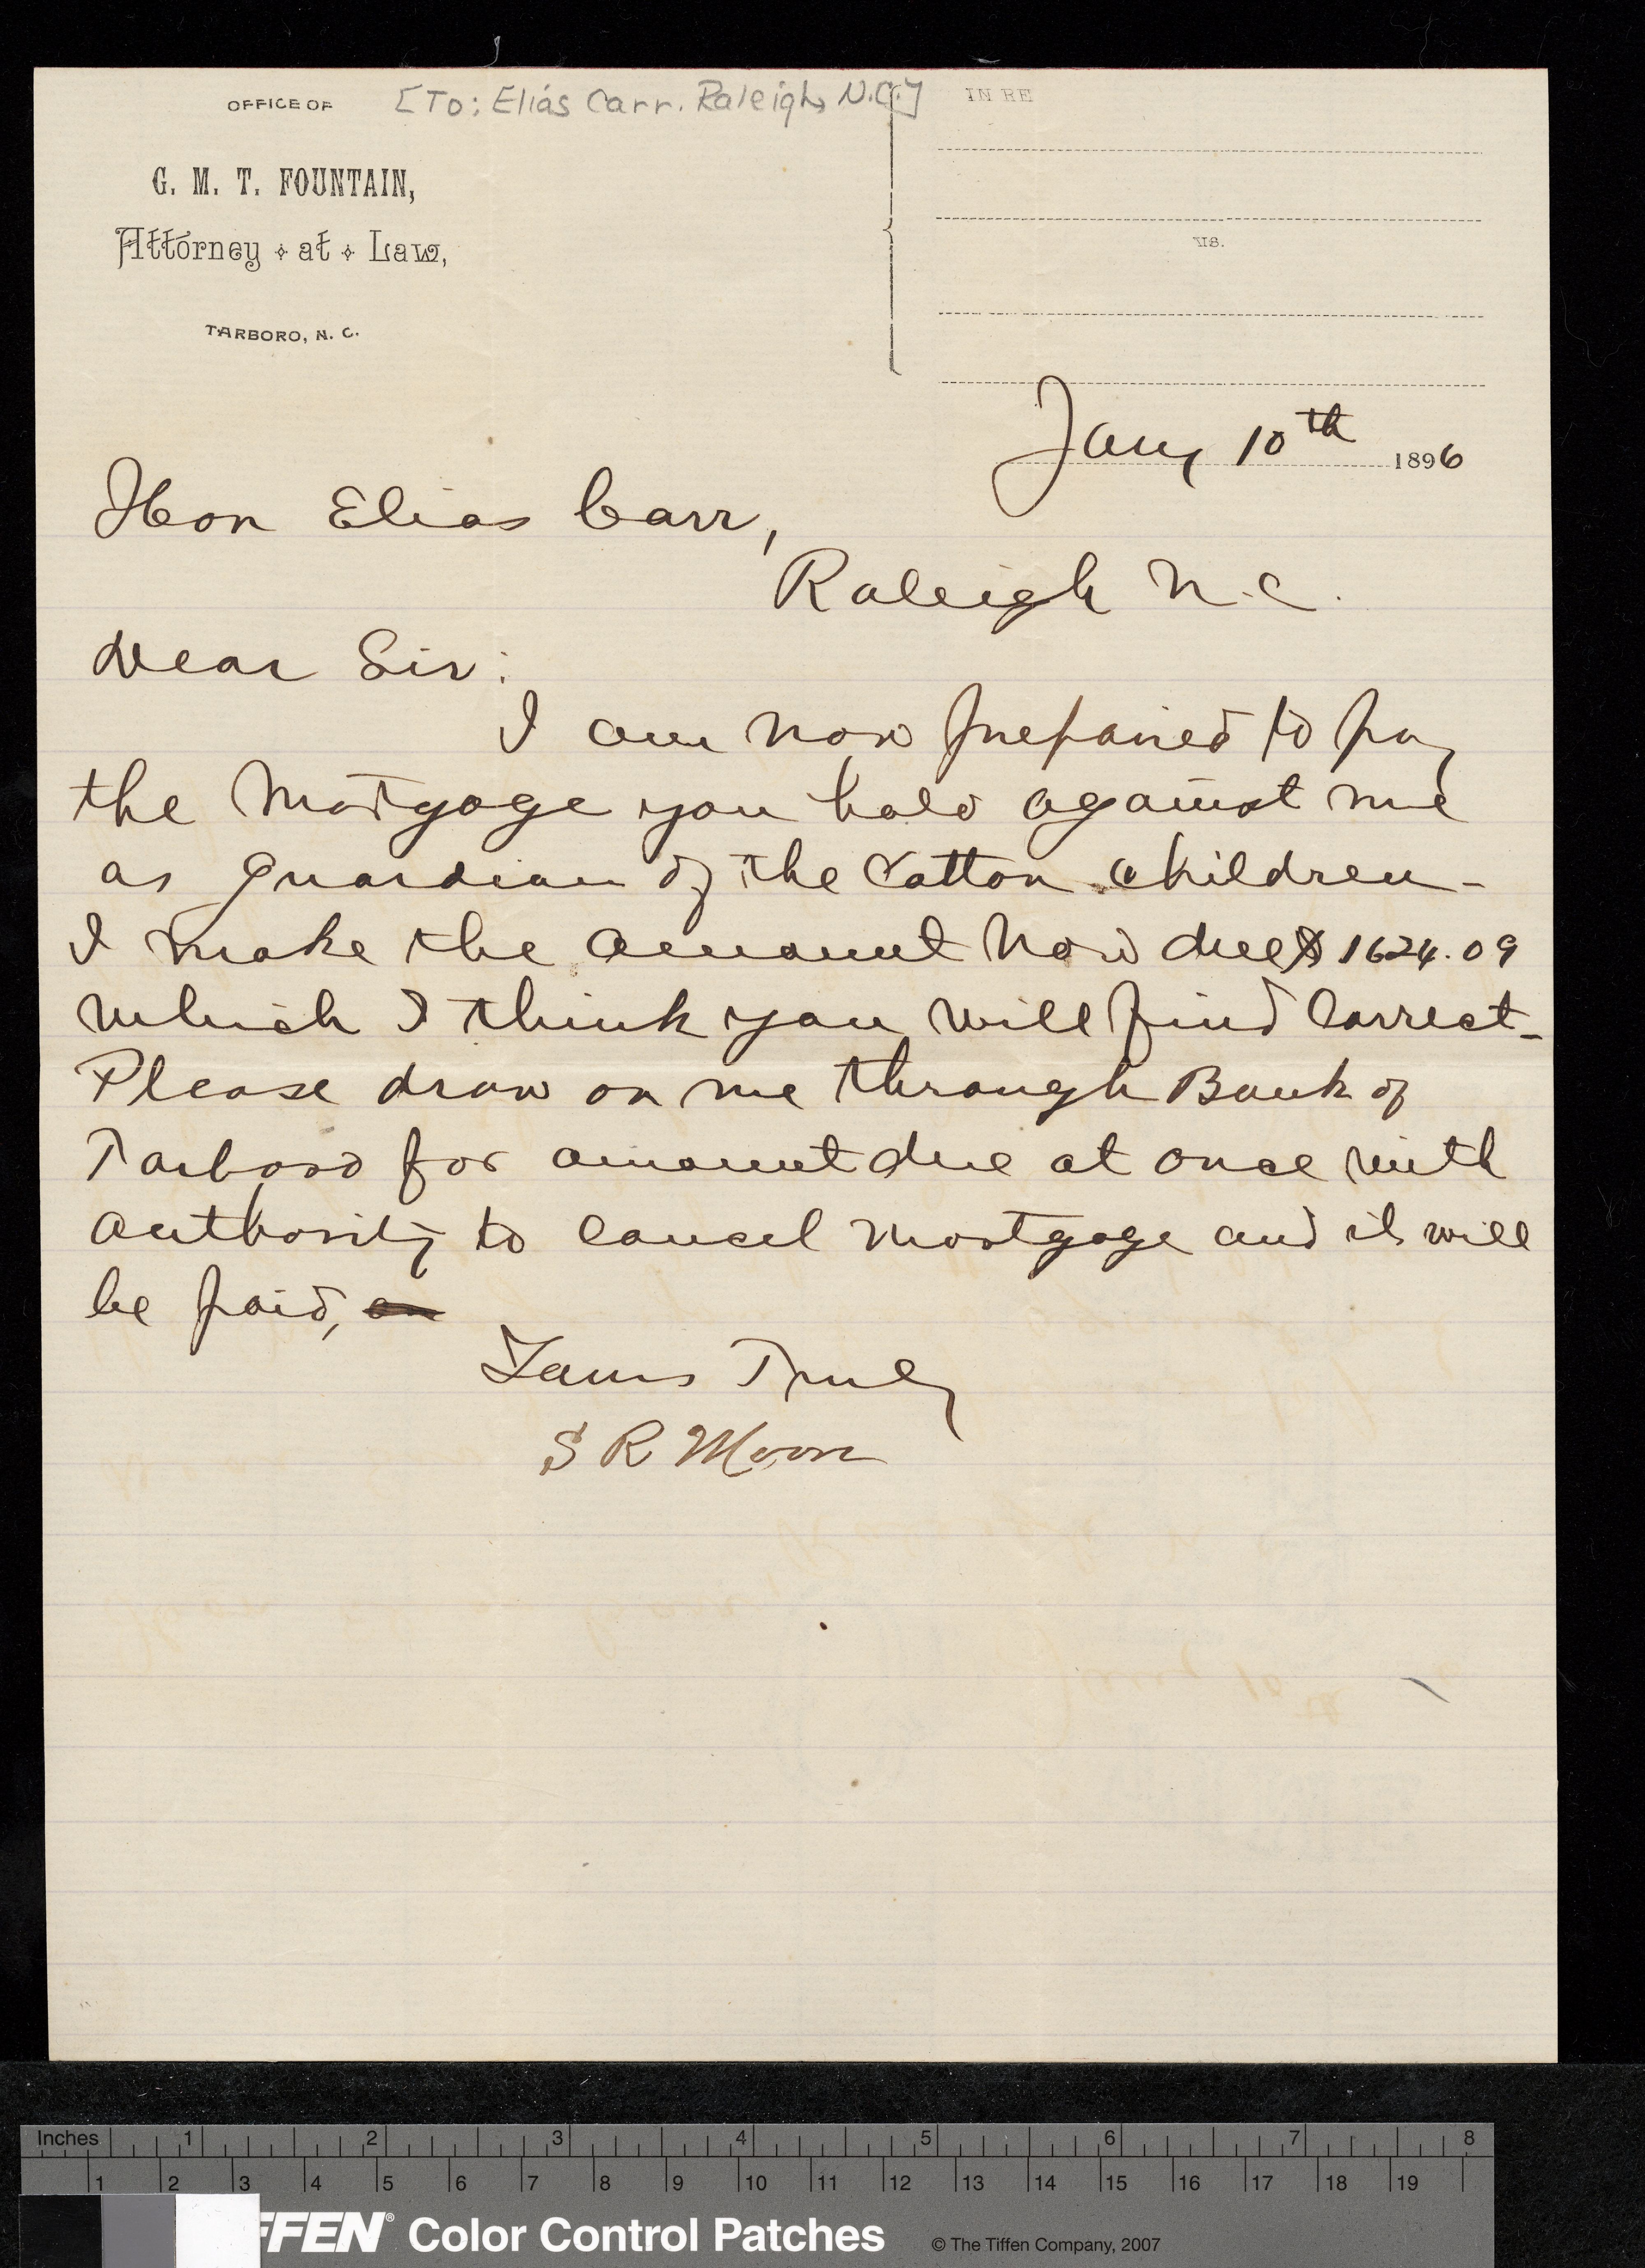 OFFICE OF
[To: Elias Carr. Raleigh, N.C.]
G. M. T. FOUNTAIN,
Attorney at Law,
TARBORO, N. C.
IN RE
vs.
Jany 10th 1896
Hon Elias Carr,
Raleigh N.C.
Dear Sir:
I am now prepared to pay
the Mortgage you hold against me
as guardian of the Cotton children-
I make the amount now due $1624.09
which I think you will find Correct-
Please draw on me through Bank of
Tarboro for amount due at once with
authority to cancel mortgage and it will
be paid,
Yours Truly
S R Moore
Inches 1 2 3 4 5 6 7 8
1 2 3 4 5 6 7 8 9 10 11 12 13 14 15 16 17 18 19
FFEN® Color Control Patches © The Tiffen Company, 2007